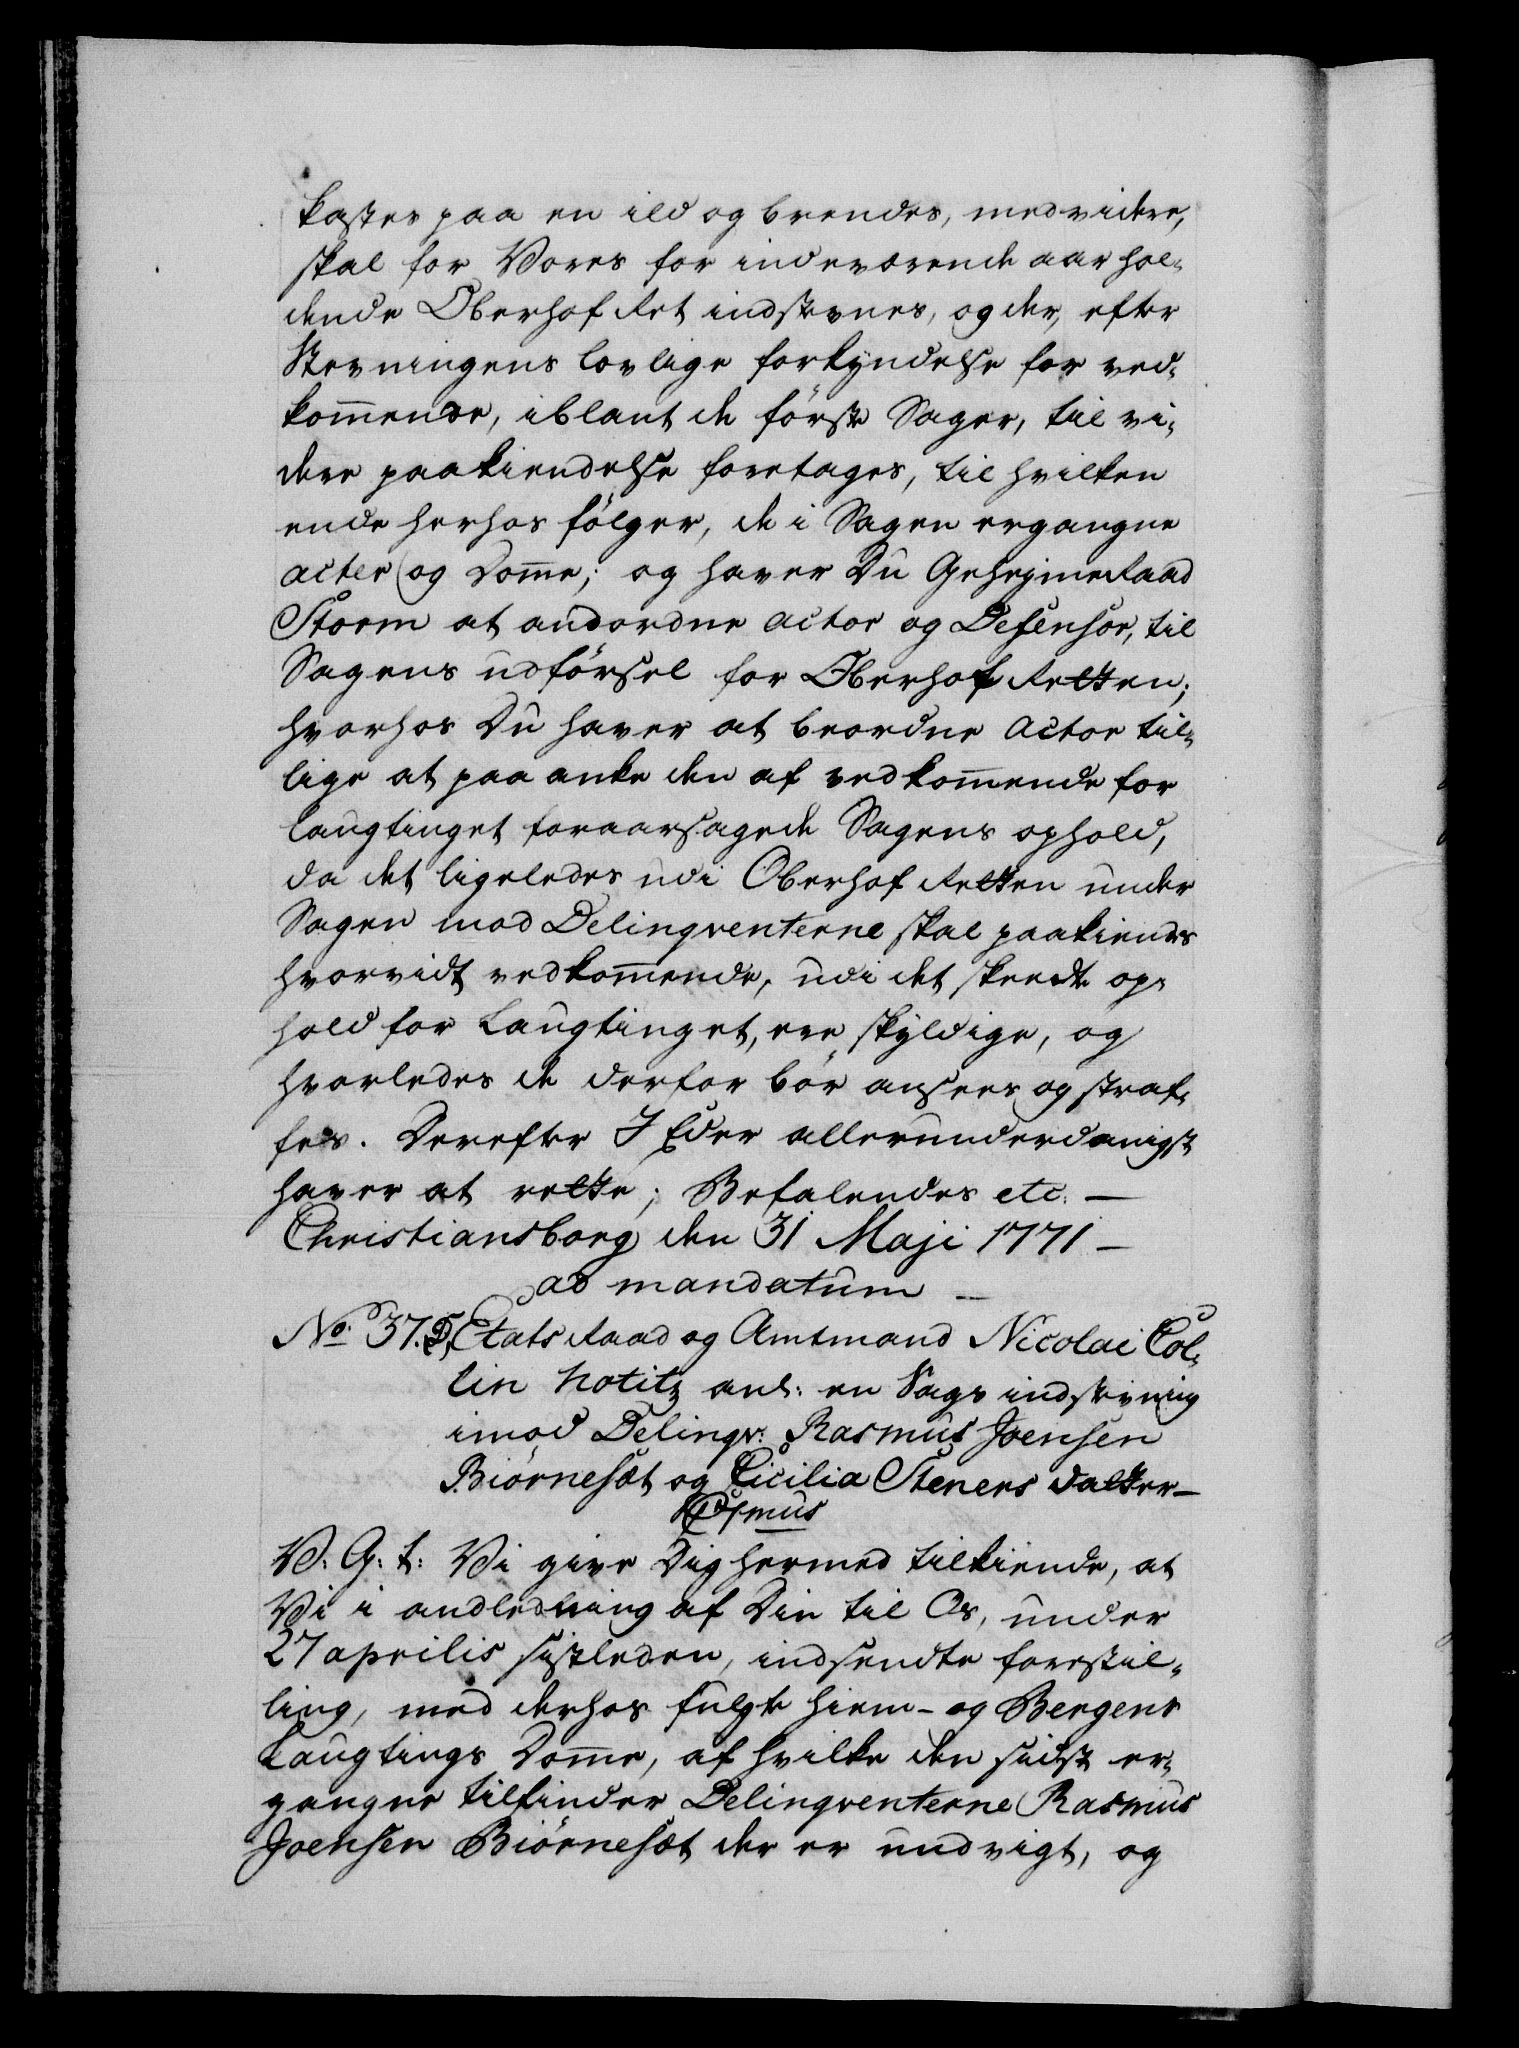 kastes paa en ild og brendes, med videre,
skal for Vores for indeværende aar hol-
dende Oberhof Ret indstevnes, og der, efter
Stevningens lovlige forkyndelse for ved-
kom̄ende, iblant de förste Sager, til vi-
dere paakiendelse foretages, til hvilken
ende herhos fölger, de i Sagen ergangne
acter og Dom̄e; og haver Du GehejmeRaad
Storm at andordne actor og Defensor, til
Sagens udförsel for Oberhof Retten;
hvorhos Du haver at beordne Actor til-
lige at paa anke den af vedkom̄ende for
laugtinget foraarsagede Sagens ophold,
da det ligeledes udi Oberhof Retten under
Sagen mod Delinqventerne skal paakiendes
hvorvidt vedkom̄ende, udi det skeedte op-
hold for Laugtinget, ere skyldige, og
hvorledes de derfor bör ansees og straf-
fes. Derefter I Eder allerunderdanigst
haver at rette; Befalendes etc. —
Christiansborg den 31 Maji 1771 —
ad mandatum —
No. 37. Etats Raad og Amtmand Nicolai Col-
lin Notitz anl: en Sags indstevning
imod Delinqv: Rasmus Joensen
Biörnesæt og Cicilia Steners datter —
C 7mus
V. G. t: Vi give Dig hermed tilkiende, at
Vi i andledning af Din til Os, under
27 aprilis sistleden, indsendte forestil-
ling, med derhos fulgte hiem- og Bergens
Laugtings Dom̄e, af hvilke den sidst er-
gangne tilfinder Delinqventerne Rasmus
Joensen Biörnesæt der er undvigt, og